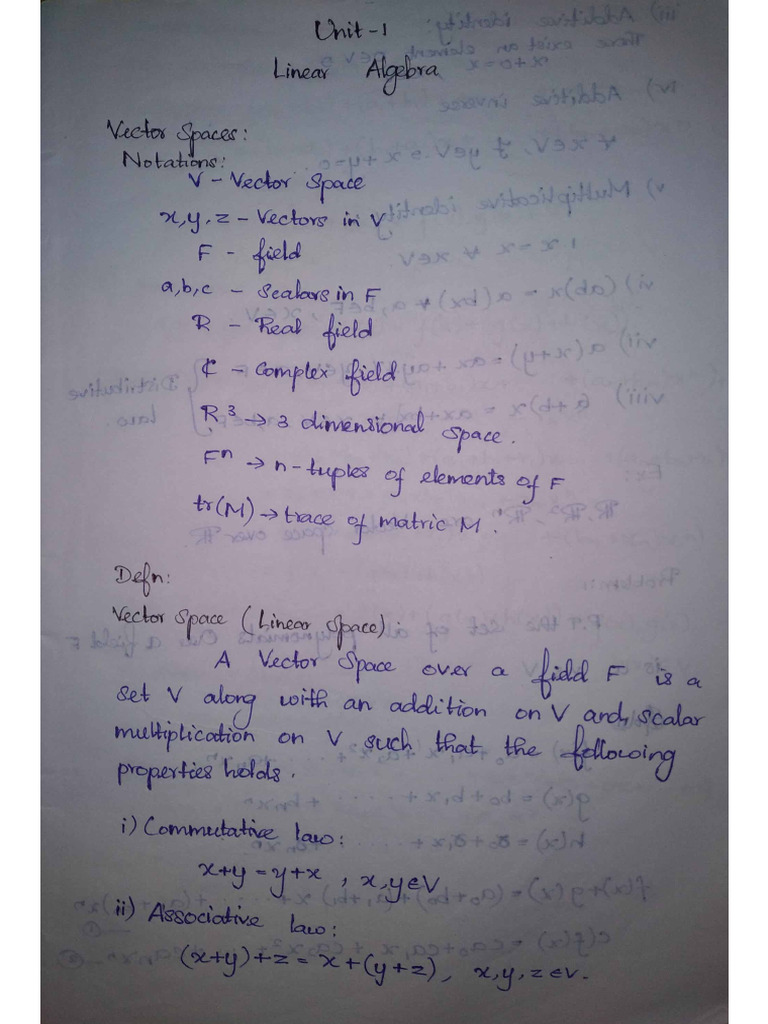 Unit-1
Linear Algebra
Vector Spaces:
Notations:
V - Vector Space
x, y, z - Vectors in V
F - field
a, b, c - Scalars in F
R - Real field
₵ - Complex field
R³ → 3 dimensional space.
Fⁿ → n-tuples of elements of F
tr(M) → trace of matric M.
Defn:
Vector Space (Linear Space):
A Vector Space over a field F is a
set V along with an addition on V and scalar
multiplication on V such that the following
properties holds.
i) Commutative law:
x+y = y+x, x, y ∈ V
ii) Associative law:
(x+y)+z = x+(y+z), x, y, z ∈ V.